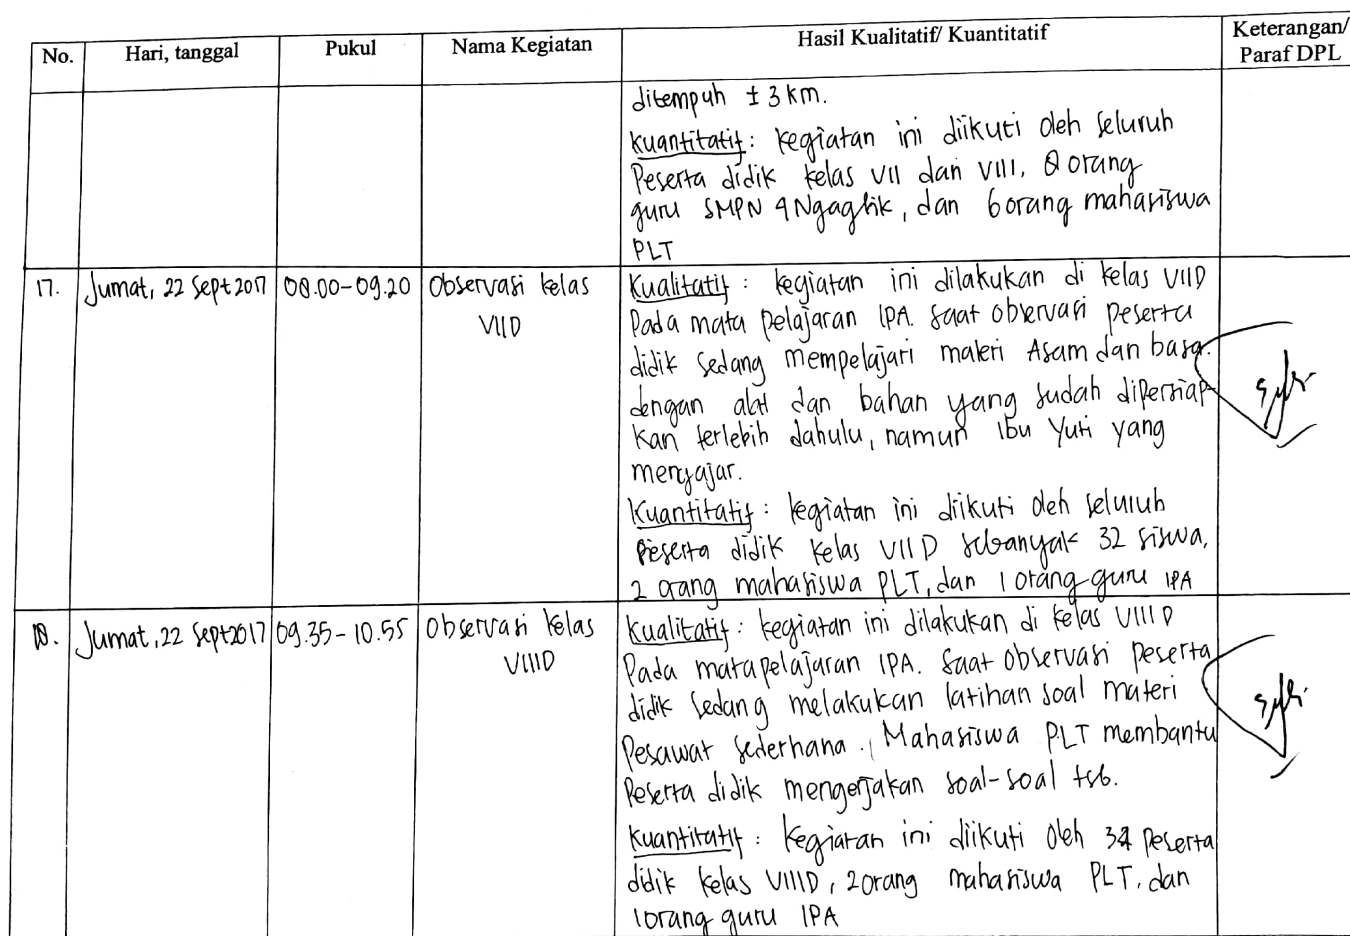 No. Hari, tanggal Pukul Nama Kegiatan Hasil Kualitatif/ Kuantitatif Keterangan/
Paraf DPL
ditempuh ± 3 km.
Kuantitatif : kegiatan ini diikuti oleh seluruh
Peserta didik kelas VII dan VIII, 8 orang
guru SMPN 4 Ngaglik, dan 6 orang mahasiswa
PLT
17. Jumat, 22 Sept 2017 08.00-09.20 Observasi kelas
VIID
Kualitatif : kegiatan ini dilakukan di kelas VIID
Pada mata pelajaran IPA. saat observasi peserta
didik sedang mempelajari materi Asam dan basa.
dengan alat dan bahan yang sudah dipersiap-
kan terlebih dahulu, namun Ibu Yuti yang
mengajar.
Kuantitatif : kegiatan ini diikuti oleh seluruh
Peserta didik kelas VIID sebanyak 32 siswa,
2 orang mahasiswa PLT, dan 1 orang guru IPA
18. Jumat, 22 Sept 2017 09.35-10.55 Observasi kelas
VIIID
Kualitatif : kegiatan ini dilakukan di kelas VIIID
Pada mata pelajaran IPA. saat observasi peserta
didik sedang melakukan latihan soal materi
Pesawat sederhana. Mahasiswa PLT membantu
Peserta didik mengerjakan soal-soal tsb.
Kuantitatif : kegiatan ini diikuti oleh 34 peserta
didik kelas VIIID, 2 orang mahasiswa PLT, dan
1 orang guru IPA